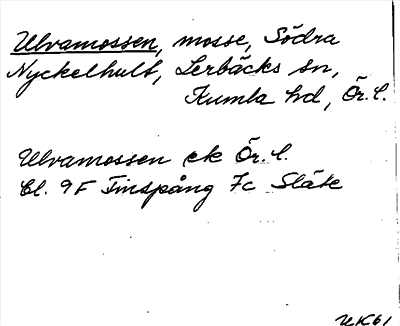 Ulvamossen, mosse, Södra
Nyckelhult, Lerbäcks sn,
Kumla hd, Ör. l.
Ulvamossen ek Ör. l.
Bl. 9F Finspång 7c Släte
UK61